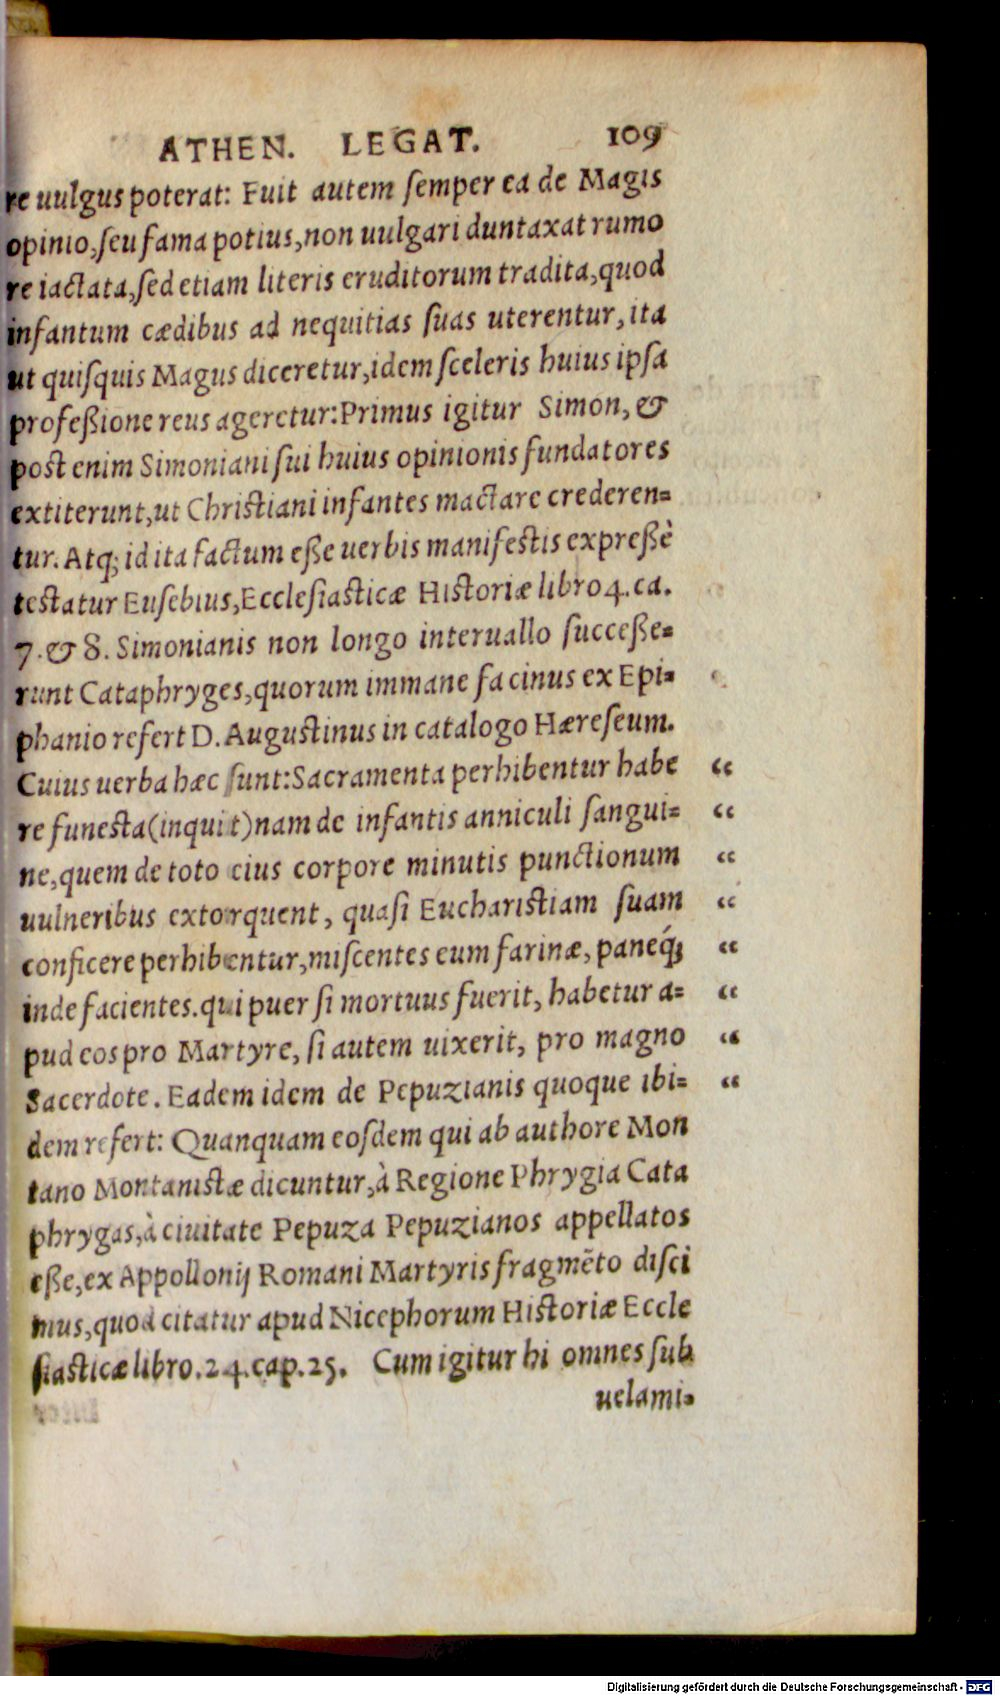 ATHEN. LEGAT. 109
re uulgus poterat: Fuit autem ſemper ea de Magis
opinio, ſeu fama potius, non uulgari duntaxat rumo
re iactata, ſed etiam literis eruditorum tradita, quod
infantum cædibus ad nequitias ſuas uterentur, ita
ut quiſquis Magus diceretur, idem ſceleris huius ipſa
profeßione reus ageretur: Primus igitur Simon, &
post enim Simoniani ſui huius opinionis fundatores
extiterunt, ut Christiani infantes mactare crederen=
tur. Atq; id ita factum eße uerbis manifestis expreßè
testatur Euſebius, Eccleſiasticæ Historiæ libro 4. ca.
7. & 8. Simonianis non longo interuallo ſucceße=
runt Cataphryges, quorum immane facinus ex Epi=
phanio refert D. Augustinus in catalogo Hæreſeum.
Cuius uerba hæc ſunt: Sacramenta perhibentur habe “
re funesta (inquit) nam de infantis anniculi ſangui= “
ne, quem de toto eius corpore minutis punctionum “
uulneribus extorquent, quaſi Euchariſtiam ſuam “
conficere perhibentur, miſcentes eum farinæ, paneq́; “
inde facientes. qui puer ſi mortuus fuerit, habetur a= “
pud eos pro Martyre, ſi autem uixerit, pro magno “
Sacerdote. Eadem idem de Pepuzianis quoque ibi= “
dem refert: Quanquam eoſdem qui ab authore Mon
tano Montanistæ dicuntur, à Regione Phrygia Cata
phrygas, à ciuitate Pepuza Pepuzianos appellatos
eße, ex Appollonij Romani Martyris fragmẽto diſci
mus, quod citatur apud Nicephorum Historiæ Eccle
ſiasticæ libro. 24. cap. 25. Cum igitur hi omnes ſub
uelami=
Digitalisierung gefördert durch die Deutsche Forschungsgemeinschaft - DFG